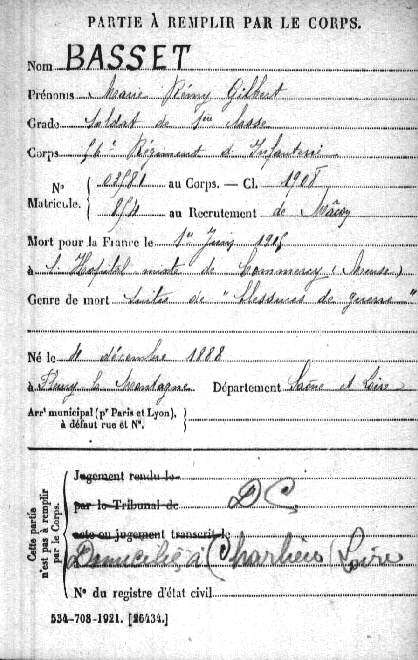 PARTIE À REMPLIR PAR LE CORPS.
Nom BASSET
Prénoms Marie Rémy Gilbert
Grade Soldat de 1ère classe
Corps 56e Régiment d'Infanterie
N° Matricule. 03981 au Corps. — Cl. 1908
854 au Recrutement de Mâcon
Mort pour la France le 1er Juin 1915
à l'Hôpital mixte de Commercy (Meuse)
Genre de mort Suites de "blessures de guerre"
Né le décembre 1888
à Fleury la Montagne Département Saône et Loire
Arrt municipal (pr Paris et Lyon),
à défaut rue et N°.
Cette partie
n'est pas à remplir
par le Corps.
Jugement rendu le
par le Tribunal de DC
acte ou jugement transcrit le
Domicilié à Charlieu (Loire
N° du registre d'état civil
534-708-1921. [26434.]